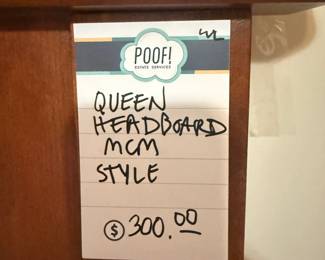 POOF!
ESTATE SERVICES
QUEEN
HEADBOARD
MCM
STYLE
$ 300.00